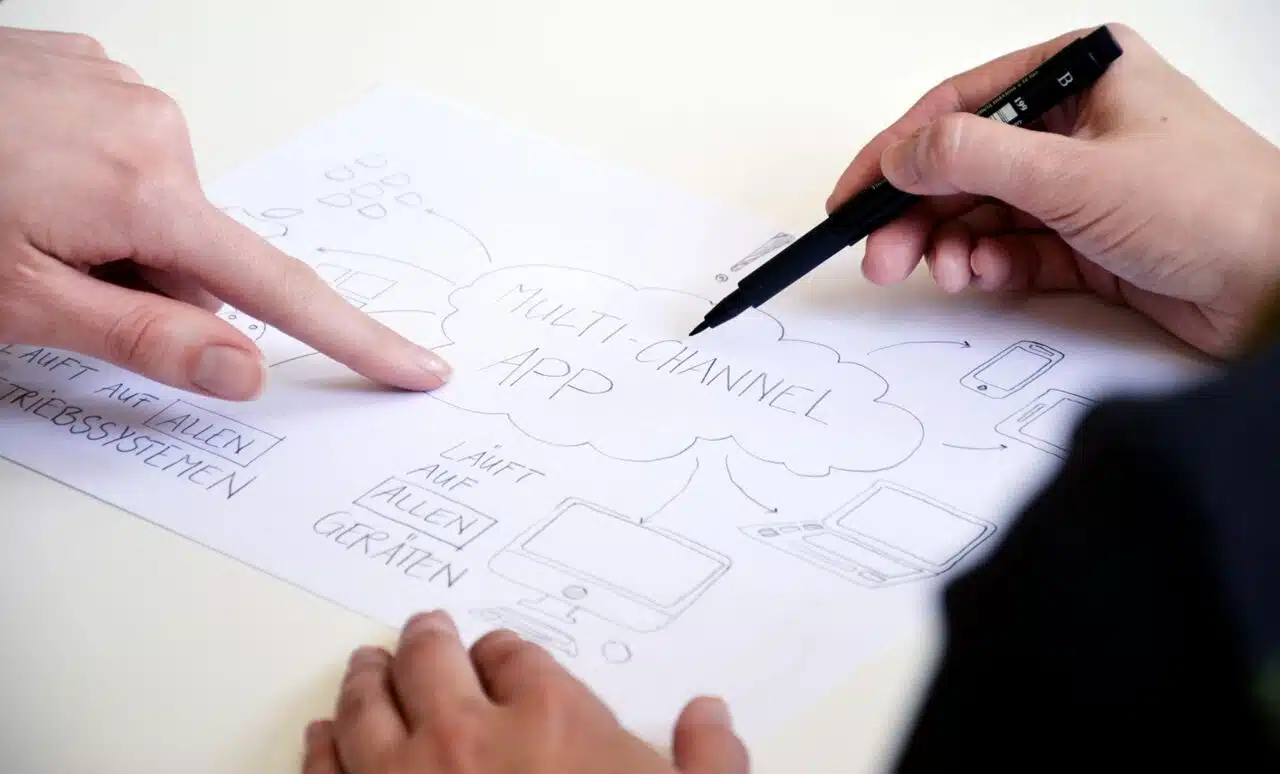 MULTI-CHANNEL
APP
LÄUFT AUF ALLEN
TRIEBSSYSTEMEN
LÄUFT
AUF
ALLEN
GERÄTEN
B
199